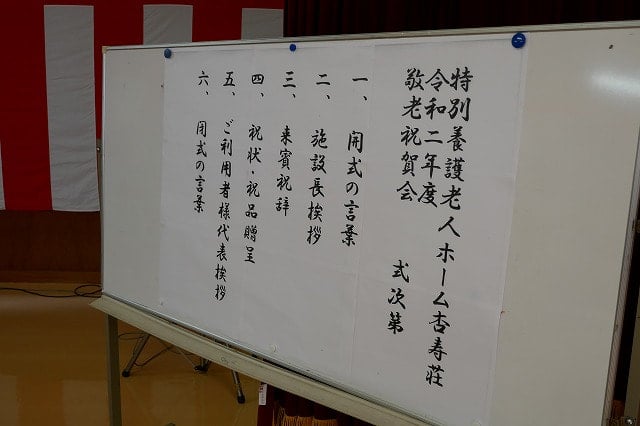 特別養護老人ホーム杏寿荘
令和二年度
敬老祝賀会
式次第
一、開式の言葉
二、施設長挨拶
三、来賓祝辞
四、祝状・祝品贈呈
五、ご利用者様代表挨拶
六、閉式の言葉